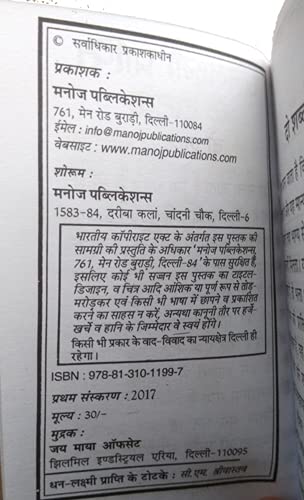 © सर्वाधिकार प्रकाशकाधीन
प्रकाशक :
मनोज पब्लिकेशन्स
761, मेन रोड बुराड़ी, दिल्ली-110084
ईमेल : info@manojpublications.com
वेबसाइट : www.manojpublications.com
शोरूम :
मनोज पब्लिकेशन्स
1583-84, दरीबा कलां, चांदनी चौक, दिल्ली-6
भारतीय कॉपीराइट एक्ट के अंतर्गत इस पुस्तक की
सामग्री की प्रस्तुति के अधिकार 'मनोज पब्लिकेशन्स,
761, मेन रोड बुराड़ी, दिल्ली-84' के पास सुरक्षित हैं,
इसलिए कोई भी सज्जन इस पुस्तक का टाइटल-
डिजाइन, व चित्र आदि आंशिक या पूर्ण रूप से तोड़-
मरोड़कर एवं किसी भी भाषा में छापने व प्रकाशित
करने का साहस न करें, अन्यथा कानूनी तौर पर हर्जे-
खर्चे व हानि के जिम्मेदार वे स्वयं होंगे।
किसी भी प्रकार के वाद-विवाद का न्यायक्षेत्र दिल्ली ही
रहेगा।
ISBN : 978-81-310-1199-7
प्रथम संस्करण : 2017
मूल्य : 30/-
मुद्रक :
जय माया ऑफसेट
झिलमिल इण्डस्ट्रियल एरिया, दिल्ली-110095
धन-लक्ष्मी प्राप्ति के टोटके : सी.एम. श्रीवास्तव